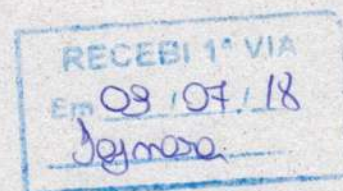 RECEBI 1ª VIA
Em 09 / 07 / 18